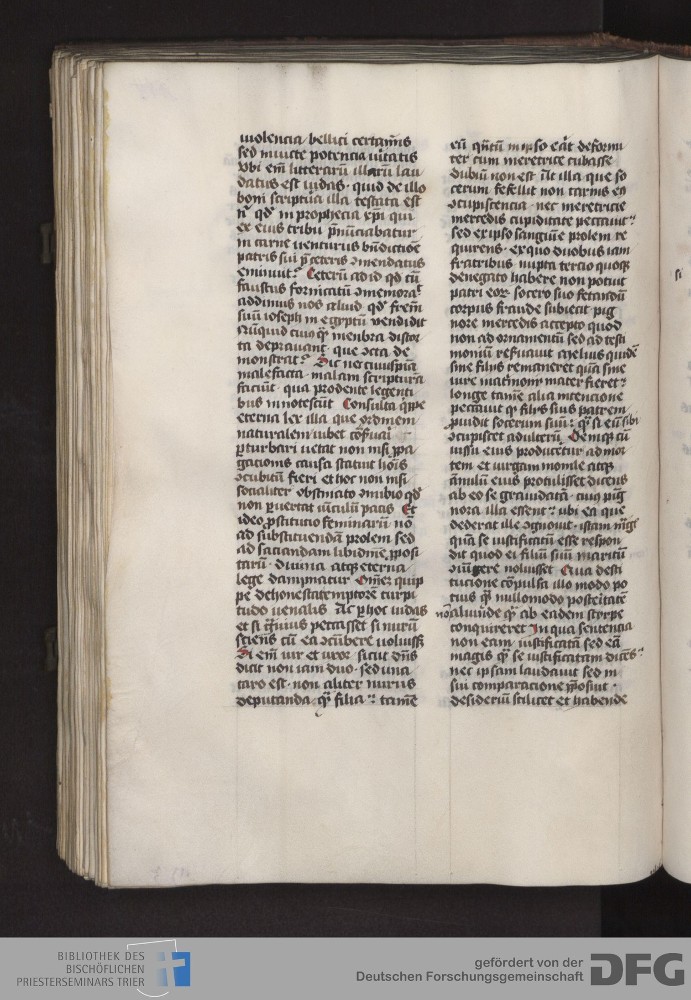 uiolencia bellici certaminis
sed inuicte potencia uitatis
Vbi em̄ litterarū illarū lau
datus est iudas · quid de illo
boni scriptura illa testata est
nisi qd̉ in prophecia xp̄i qui
ex eius tribu p̄nūciabatur
in carne uenturus bn̄dictiōe
patris sui p̄ ceteris ɔmendatus
eminuit Ceterū ad id qd̉ cū
faustus fornicatū ɔmemorat
addimus nos aliud qd̉ frēm
suū ioseph in egyptū uendidit
Nūquid cuiusq̉ menbra distor
ta deprauant que ɔcta de
monstrat Sic nec cuiuspiā
malefacta malam scriptura
faciūt qua prodente legenti
bus innotescūt Consulta q̄ppe
eterna lex illa que ordinem
naturalem iubet
ꝑturbari uetat non nisi ꝓpa
gacionis causa statuit hoīs
ɔcubitū fieri et hoc non nisi
socialiter
non ꝑuertat uīculū pacis Et
ideo ꝓstitucio feminarū nō
ad substituendā prolem sed
ad saciandam libidinē ꝓposi
tarū · diuina atqꝫ eterna
lege dampnatur Om̄er quip
pe dehonestat emptorē turpi
tudo uenalis Ac ꝑ hoc iudas
et si grauius peccasset si nurū
sciens cū ea ɔcūbere uoluissꝫ
Si em̄ uir et uxor sicut dn̄s
dicit non iam duo · sed una
caro est · non aliter nurus
deputanda q̄ filia tamē
eū q̄ntū in ipso eāt deformi
ter cum meretrice cubasse
dubiū non est at illa que so
cerum fefellit non carnis eiꝰ
ɔcupiscencia · nec meretricie
mercedis cupiditate peccauit
sed ex ipso sanguine prolem re
quirens · ex quo duobus iam
fratribus nupta tercio quoqꝫ
denegato habere non potuit
patri eorum socero suo fetandū
corpus fraude subiecit pig
nore mercedis accepto quod
non ad ornamentū sed ad testi
monium reseruauit Melius quidē
sine filiis remaneret quā sine
iure matrimonij mater fieret
longe tamē alia intencione
peccauit q̄ filiis suis patrem
ꝓuidit socerum suū q̄ si eū sibi
ɔcupiscet adulterū Deniqꝫ cū
iussu eius producetur ad mor
tem et uirgam monile atqꝫ
ānulū eius protulisset dicens
ab eo se grauidatā cuius pig
nora illa essent ubi ea que
dederat ille ɔgnouit · istam magis
quā se iustificatū esse respon
dit quod ei filiū suū maritū
ɔiūgere noluisset Cuius desti
tucione cōpulsa illo modo po
tius q̄ nullo modo posteritatē
non aliunde q̄ ab eadem stirpe
conquireret In qua sentencia
non eam iustificatā sed eā
magis q̄ se iustificatam dicēs
nec ipsam laudauit sed in
sui comparacione ꝓposuit ·
desideriū scilicet et habende
si
BIBLIOTHEK DES
BISCHÖFLICHEN
PRIESTERSEMINARS TRIER
gefördert von der
Deutschen Forschungsgemeinschaft
DFG